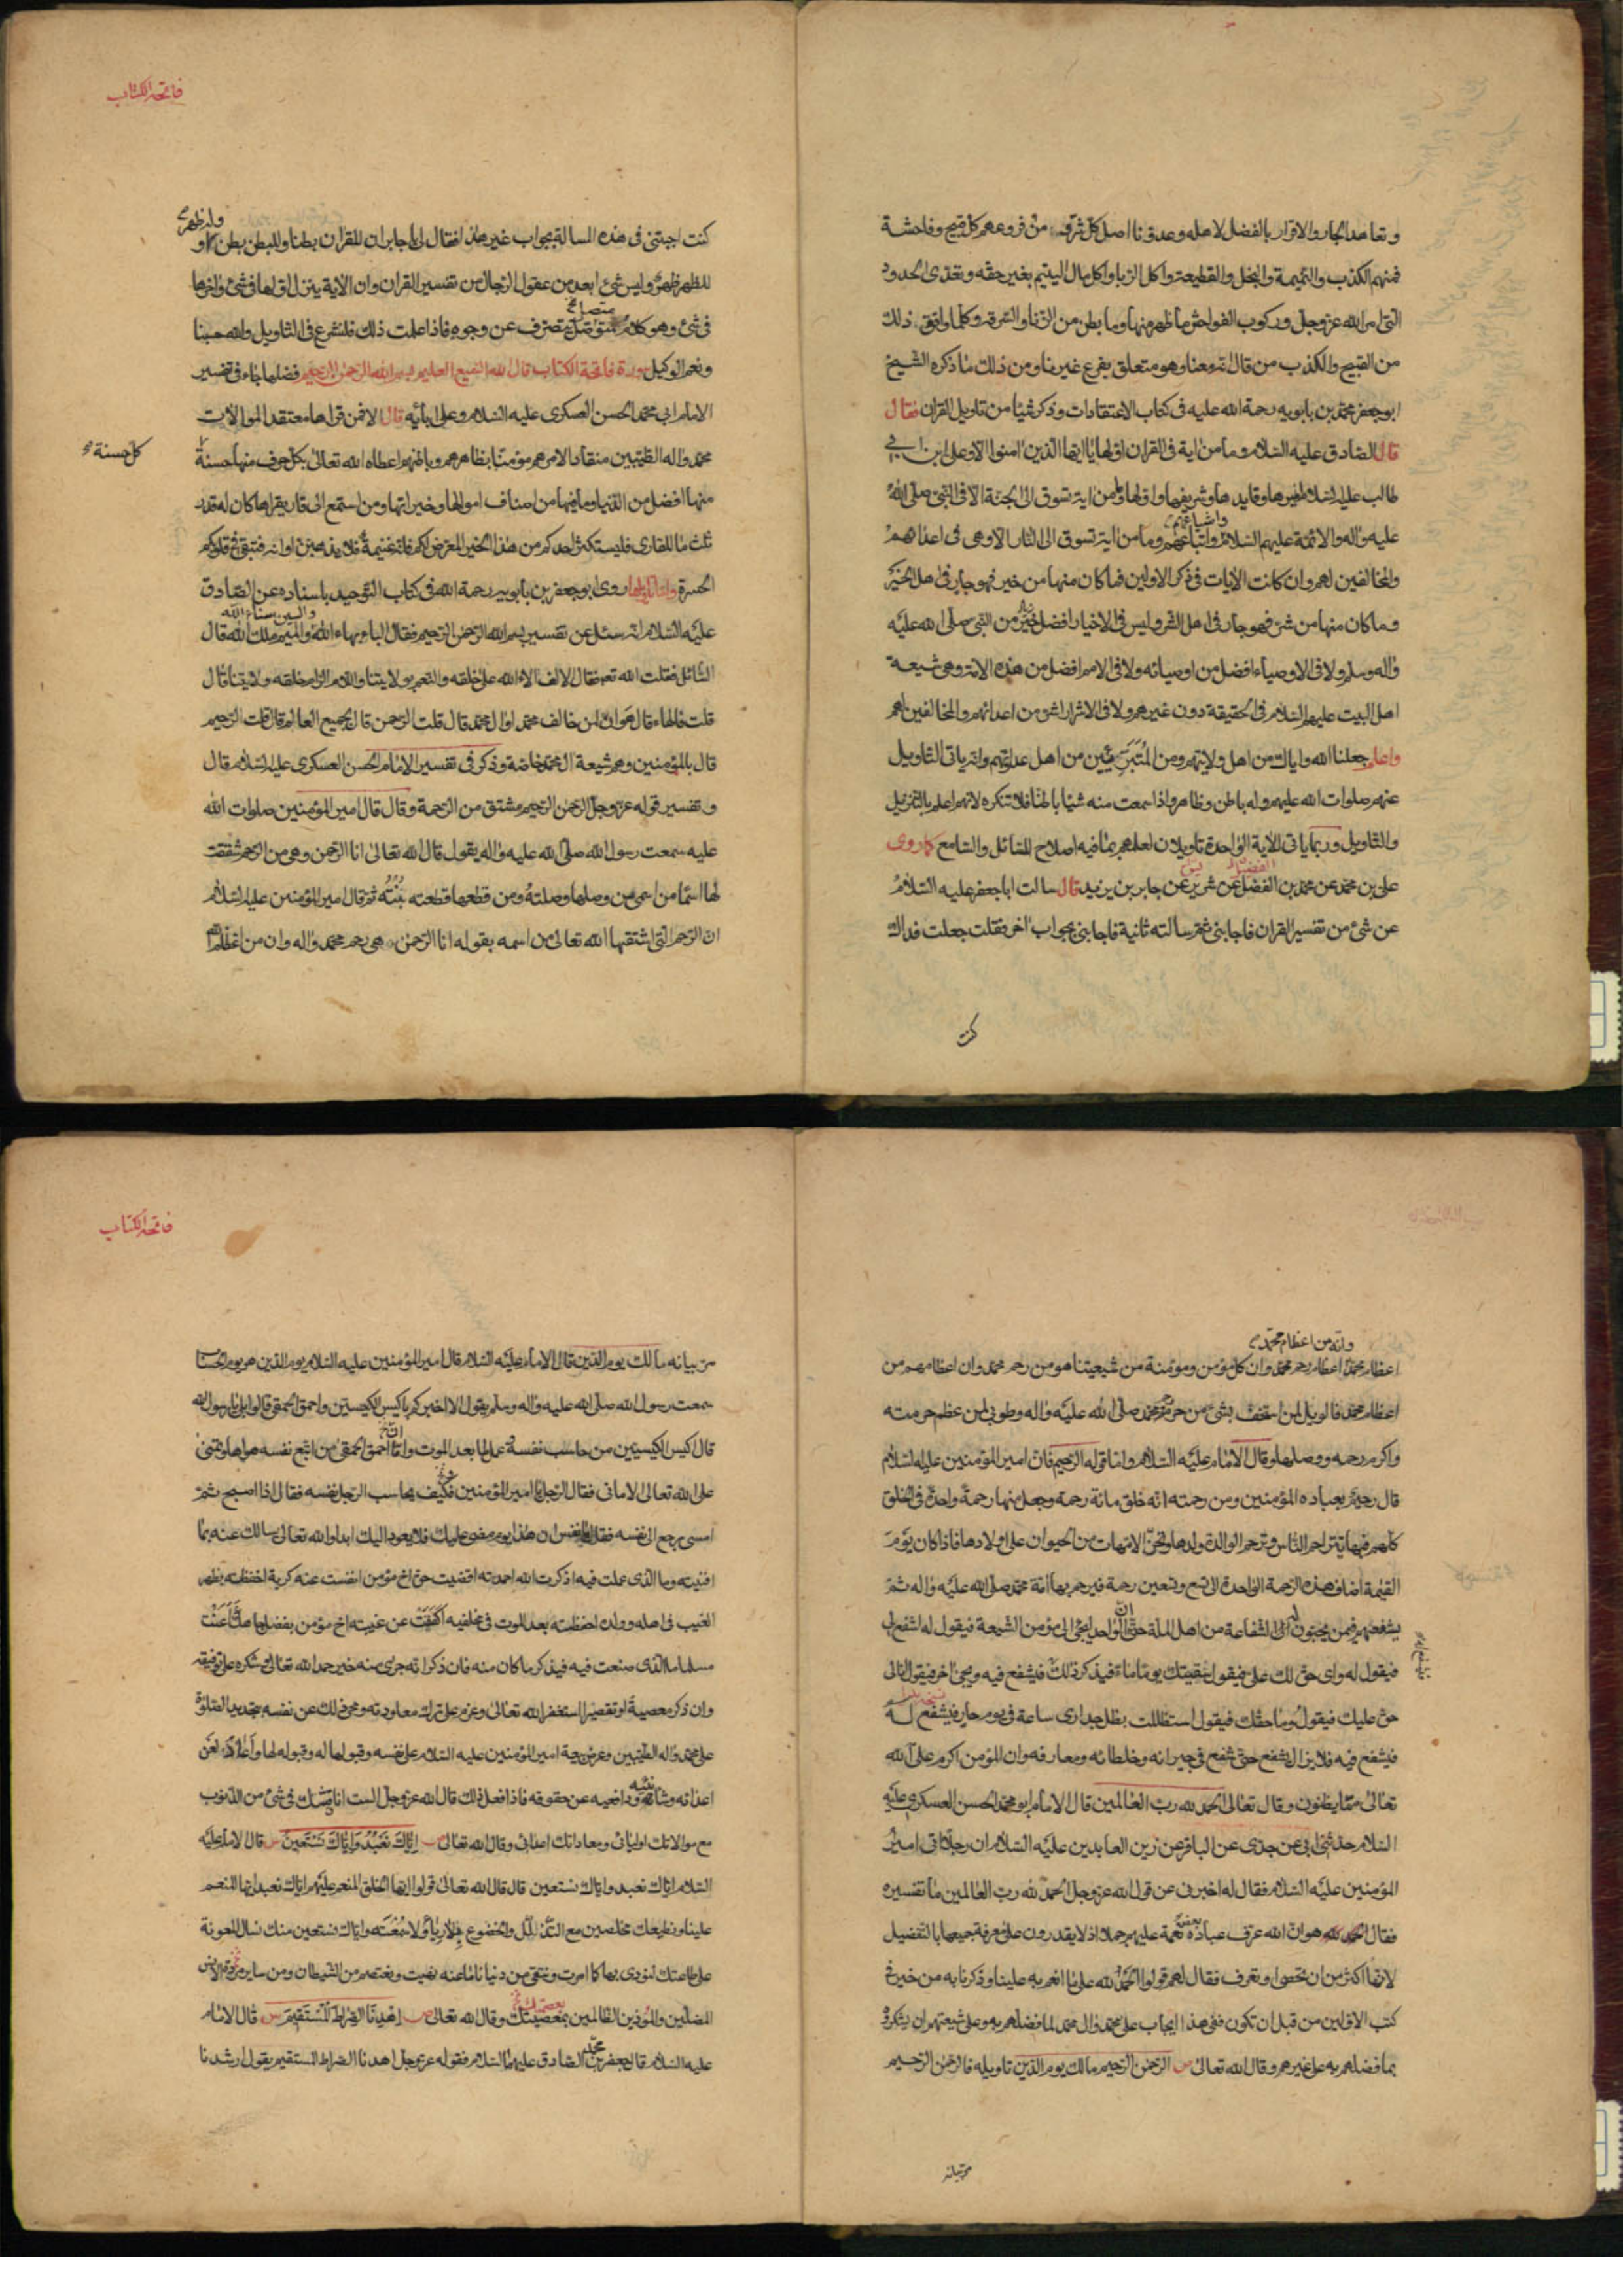 وتعاهد الجار والاقرار بالفضل لاهله وعدونا اصل كل شر ومن فروعهم كل قبيح وفاحشة
فمنهم الكذب والنميمة والبخل والقطيعة واكل الربا واكل مال اليتيم بغير حقه وتعدى الحدود
التى امر الله عز وجل وركوب الفواحش ما ظهر منها وما بطن من الزنا والسرقة وكلما وافق ذلك
من القبيح والكذب من قال انه معنا وهو متعلق بفرع غيرنا ومن ذلك ما ذكره الشيخ
ابو جعفر محمد بن بابويه رحمة الله عليه فى كتاب الاعتقادات وذكر شيئا من تاويل القران فقال
قال الصادق عليه السلام وما من اية فى القران اولها يا ايها الذين امنوا الا وعلى ابن ابى
طالب عليه السلام اميرها وقايدها وشريفها واولها وما من اية تسوق الى الجنة الا فى النبى صلى الله
عليه واله والائمة عليهم السلام واشياعهم واتباعهم وما من اية تسوق الى النار الا وهى فى اعدائهم
والمخالفين لهم وان كانت الايات فى ذكر الاولين فما كان منها من خير فهو جار فى اهل الخير
وما كان منها من شر فهو جار فى اهل الشر وليس فى الاخيار افضل خير من النبى صلى الله عليه
واله وسلم ولا فى الاوصياء افضل من اوصيائه ولا فى الامم افضل من هذه الامة وهى شيعة
اهل البيت عليهم السلام فى الحقيقة دون غيرهم ولا فى الاشرار اشر من اعدائهم والمخالفين لهم
واعلم جعلنا الله واياك من اهل ولايتهم ومن المتبرئين من اهل عداوتهم وانه ياتى التاويل
عنهم صلوات الله عليهم وله باطن وظاهر واذا سمعت منه شيئا باطنا فلا تنكره لانهم اعلم بالتنزيل
والتاويل وربما ياتى الاية الواحدة تاويلان لعلمهم بما فيه اصلاح للسائل والسامع كما روى
على بن محمد عن محمد بن الفضل عن شريس عن جابر بن يزيد قال سالت ابا جعفر عليه السلام
عن شئ من تفسير القران فاجابنى ثم سالته ثانية فاجابنى بجواب اخر فقلت جعلت فداك
كنت
فاتحة الكتاب
كنت اجبتنى فى هذه المسالة بجواب غير هذا فقال لى يا جابر ان للقران بطنا وللبطن بطن وله ظهر و
للظهر ظهر وليس شئ ابعد من عقول الرجال من تفسير القران وان الاية ينزل اولها فى شئ واخرها
فى شئ وهو كلام متصل متصرف عن وجوه فاذا علمت ذلك فلنشرع فى التاويل والله حسبنا
ونعم الوكيل سورة فاتحة الكتاب قال الله السميع العليم بسم الله الرحمن الرحيم فضلها جاء فى تفسير
الامام ابى محمد الحسن العسكرى عليه السلام وعلى ابائه قال الا فمن قراها معتقدا لموالات
محمد واله الطيبين منقادا لامرهم مؤمنا بظاهرهم وباطنهم اعطاه الله تعالى بكل حرف منها حسنة
كل حسنة
منها افضل من الدنيا وما فيها من اصناف اموالها وخيراتها ومن استمع الى قار يقراها كان له قدر
ثلث ما للقارى فليستكثر احدكم من هذا الخير المعرض لكم فانه غنيمة فلا يذهبن اوانه فتبقى فى قلوبكم
الحسرة واما تاويلها روى ابو جعفر بن بابويه رحمة الله فى كتاب التوحيد باسناده عن الصادق
عليه السلام انه سئل عن تفسير بسم الله الرحمن الرحيم فقال الباء بهاء الله والسين سناء الله والميم ملك الله قال
السائل فقلت الله تعم فقال الالف الاء الله على خلقه والنعيم بولايتنا واللام الزام خلقه ولايتنا قال
قلت فالهاء قال هوان لمن خالف محمد او ال محمد قال قلت الرحمن قال بجميع العالم قال قلت الرحيم
قال بالمؤمنين وهم شيعة ال محمد خاصة وذكر فى تفسير الامام الحسن العسكرى عليه السلام قال
وتفسير قوله عز وجل الرحمن الرحيم مشتق من الرحمة وقال قال امير المؤمنين صلوات الله
عليه سمعت رسول الله صلى الله عليه واله يقول قال الله تعالى انا الرحمن وهى من الرحم شققت
لها اسما من اسمى من وصلها وصلته ومن قطعها قطعته بتته ثم قال امير المؤمنين عليه السلام
ان الرحم التى اشتقها الله تعالى من اسمه بقوله انا الرحمن هى رحم محمد واله وان من اعظام الله
وانه من اعظام محمد
اعظام محمد اعظام رحم محمد وان كل مؤمن ومؤمنة من شيعتنا هو من رحم محمد وان اعظامهم من
اعظام محمد فالويل لمن استخف بشئ من حرمة محمد صلى الله عليه واله وطوبى لمن عظم حرمته
واكرم رحمه ووصلها وقال الامام عليه السلام واما قوله الرحيم فان امير المؤمنين عليه السلام
قال رحيم بعباده المؤمنين ومن رحمته انه خلق مائة رحمة وجعل منها رحمة واحدة فى الخلق
كلهم فبها يتراحم الناس وترحم الوالدة ولدها وتحن الامهات من الحيوان على اولادها فاذا كان يوم
القيمة اضاف هذه الرحمة الواحدة الى تسع وتسعين رحمة فيرحم بها امة محمد صلى الله عليه واله ثم
يشفعهم فيمن يحبون له الشفاعة من اهل الملة حتى ان الواحد ليجئ الى مؤمن الشيعة فيقول له اشفع لى
فيقول له واى حق لك على فيقول سقيتك يوما ماء فيذكر ذلك فيشفع فيه ويجئ اخر فيقول انا لى
حق عليك فيقول وما حقك فيقول استظللت بظل جدارى ساعة فى يوم حار فيشفع له
فيشفع فيه فلا يزال يشفع حتى شفع فى جيرانه وخلطائه ومعارفه وان المؤمن اكرم على الله
تعالى مما يظنون وقال تعالى الحمد لله رب العالمين قال الامام ابو محمد الحسن العسكرى عليه
السلام حدثنى ابى عن جدى عن الباقر عن زين العابدين عليه السلام ان رجلا اتى امير
المؤمنين عليه السلام فقال له اخبرنى عن قول الله عز وجل الحمد لله رب العالمين ما تفسيره
فقال الحمد لله هو ان الله عرف عباده بعض نعمه عليهم جملا اذ لا يقدرون على معرفة جميعها بالتفصيل
لانها اكثر من ان تحصى او تعرف فقال لهم قولوا الحمد لله على ما انعم به علينا وذكرنا به من خير فى
كتب الاولين من قبل ان نكون ففى هذا ايجاب على محمد وال محمد لما فضلهم به وعلى شيعتهم ان يشكروه
بما فضلهم به على غيرهم وقال الله تعالى الرحمن الرحيم مالك يوم الدين تاويله فالرحمن الرحيم
مر بيانه
فاتحة الكتاب
مر بيانه مالك يوم الدين قال الامام عليه السلام قال امير المؤمنين عليه السلام يوم الدين هو يوم الحساب
سمعت رسول الله صلى الله عليه واله وسلم يقول الا اخبركم باكيس الكيسين واحمق الحمقى قالوا بلى يا رسول الله
قال اكيس الكيسين من حاسب نفسه وعمل لما بعد الموت وان احمق الحمقى من اتبع نفسه هواها وتمنى
على الله تعالى الامانى فقال الرجل يا امير المؤمنين فكيف يحاسب الرجل نفسه فقال اذا اصبح ثم
امسى رجع الى نفسه فقال يا نفس ان هذا يوم مضى عليك فلا يعود اليك ابدا والله تعالى سالك عنه بما
افنيته وما الذى عملت فيه اذكرت الله احمدته اقضيت حق اخ مؤمن انفست عنه كربة احفظته بظهر
الغيب فى اهله وولده احفظته بعد الموت فى مخلفيه اكففت عن غيبته اخ مؤمن بفضل جاهك أأعنت
مسلما ما الذى صنعت فيه فيذكر ما كان منه فان ذكر انه جرى منه خير حمد الله تعالى وشكره على توفيقه
وان ذكر معصية او تقصيرا استغفر الله تعالى وعزم على ترك معاودته ومحى ذلك عن نفسه بتجديد الصلوة
على محمد واله الطيبين وعرض بيعة امير المؤمنين عليه السلام على نفسه وقبولها له وقبوله لها واعادة لعن
اعدائه وشانئيه ودافعيه عن حقوقه فاذا فعل ذلك قال الله عز وجل لست اناقشك فى شئ من الذنوب
مع موالاتك اوليائى ومعاداتك اعدائى وقال الله تعالى اياك نعبد واياك نستعين قال الامام عليه
السلام اياك نعبد واياك نستعين قال قال الله تعالى قولوا ايها الخلق المنعم عليهم اياك نعبد ايها المنعم
علينا ونطيعك مخلصين مع التذلل والخضوع بلا رياء ولا سمعة واياك نستعين منك نسال المعونة
على طاعتك لنؤدى بها كما امرت ونتقى من دنيانا ما عنه نهيت ونعتصم من الشيطان ومن ساير مردة الانس
المضلين والمؤذين الظالمين بعصمتك وقال الله تعالى اهدنا الصراط المستقيم قال الامام
عليه السلام قال جعفر بن محمد الصادق عليهما السلام فقوله عز وجل اهدنا الصراط المستقيم يقول ارشدنا